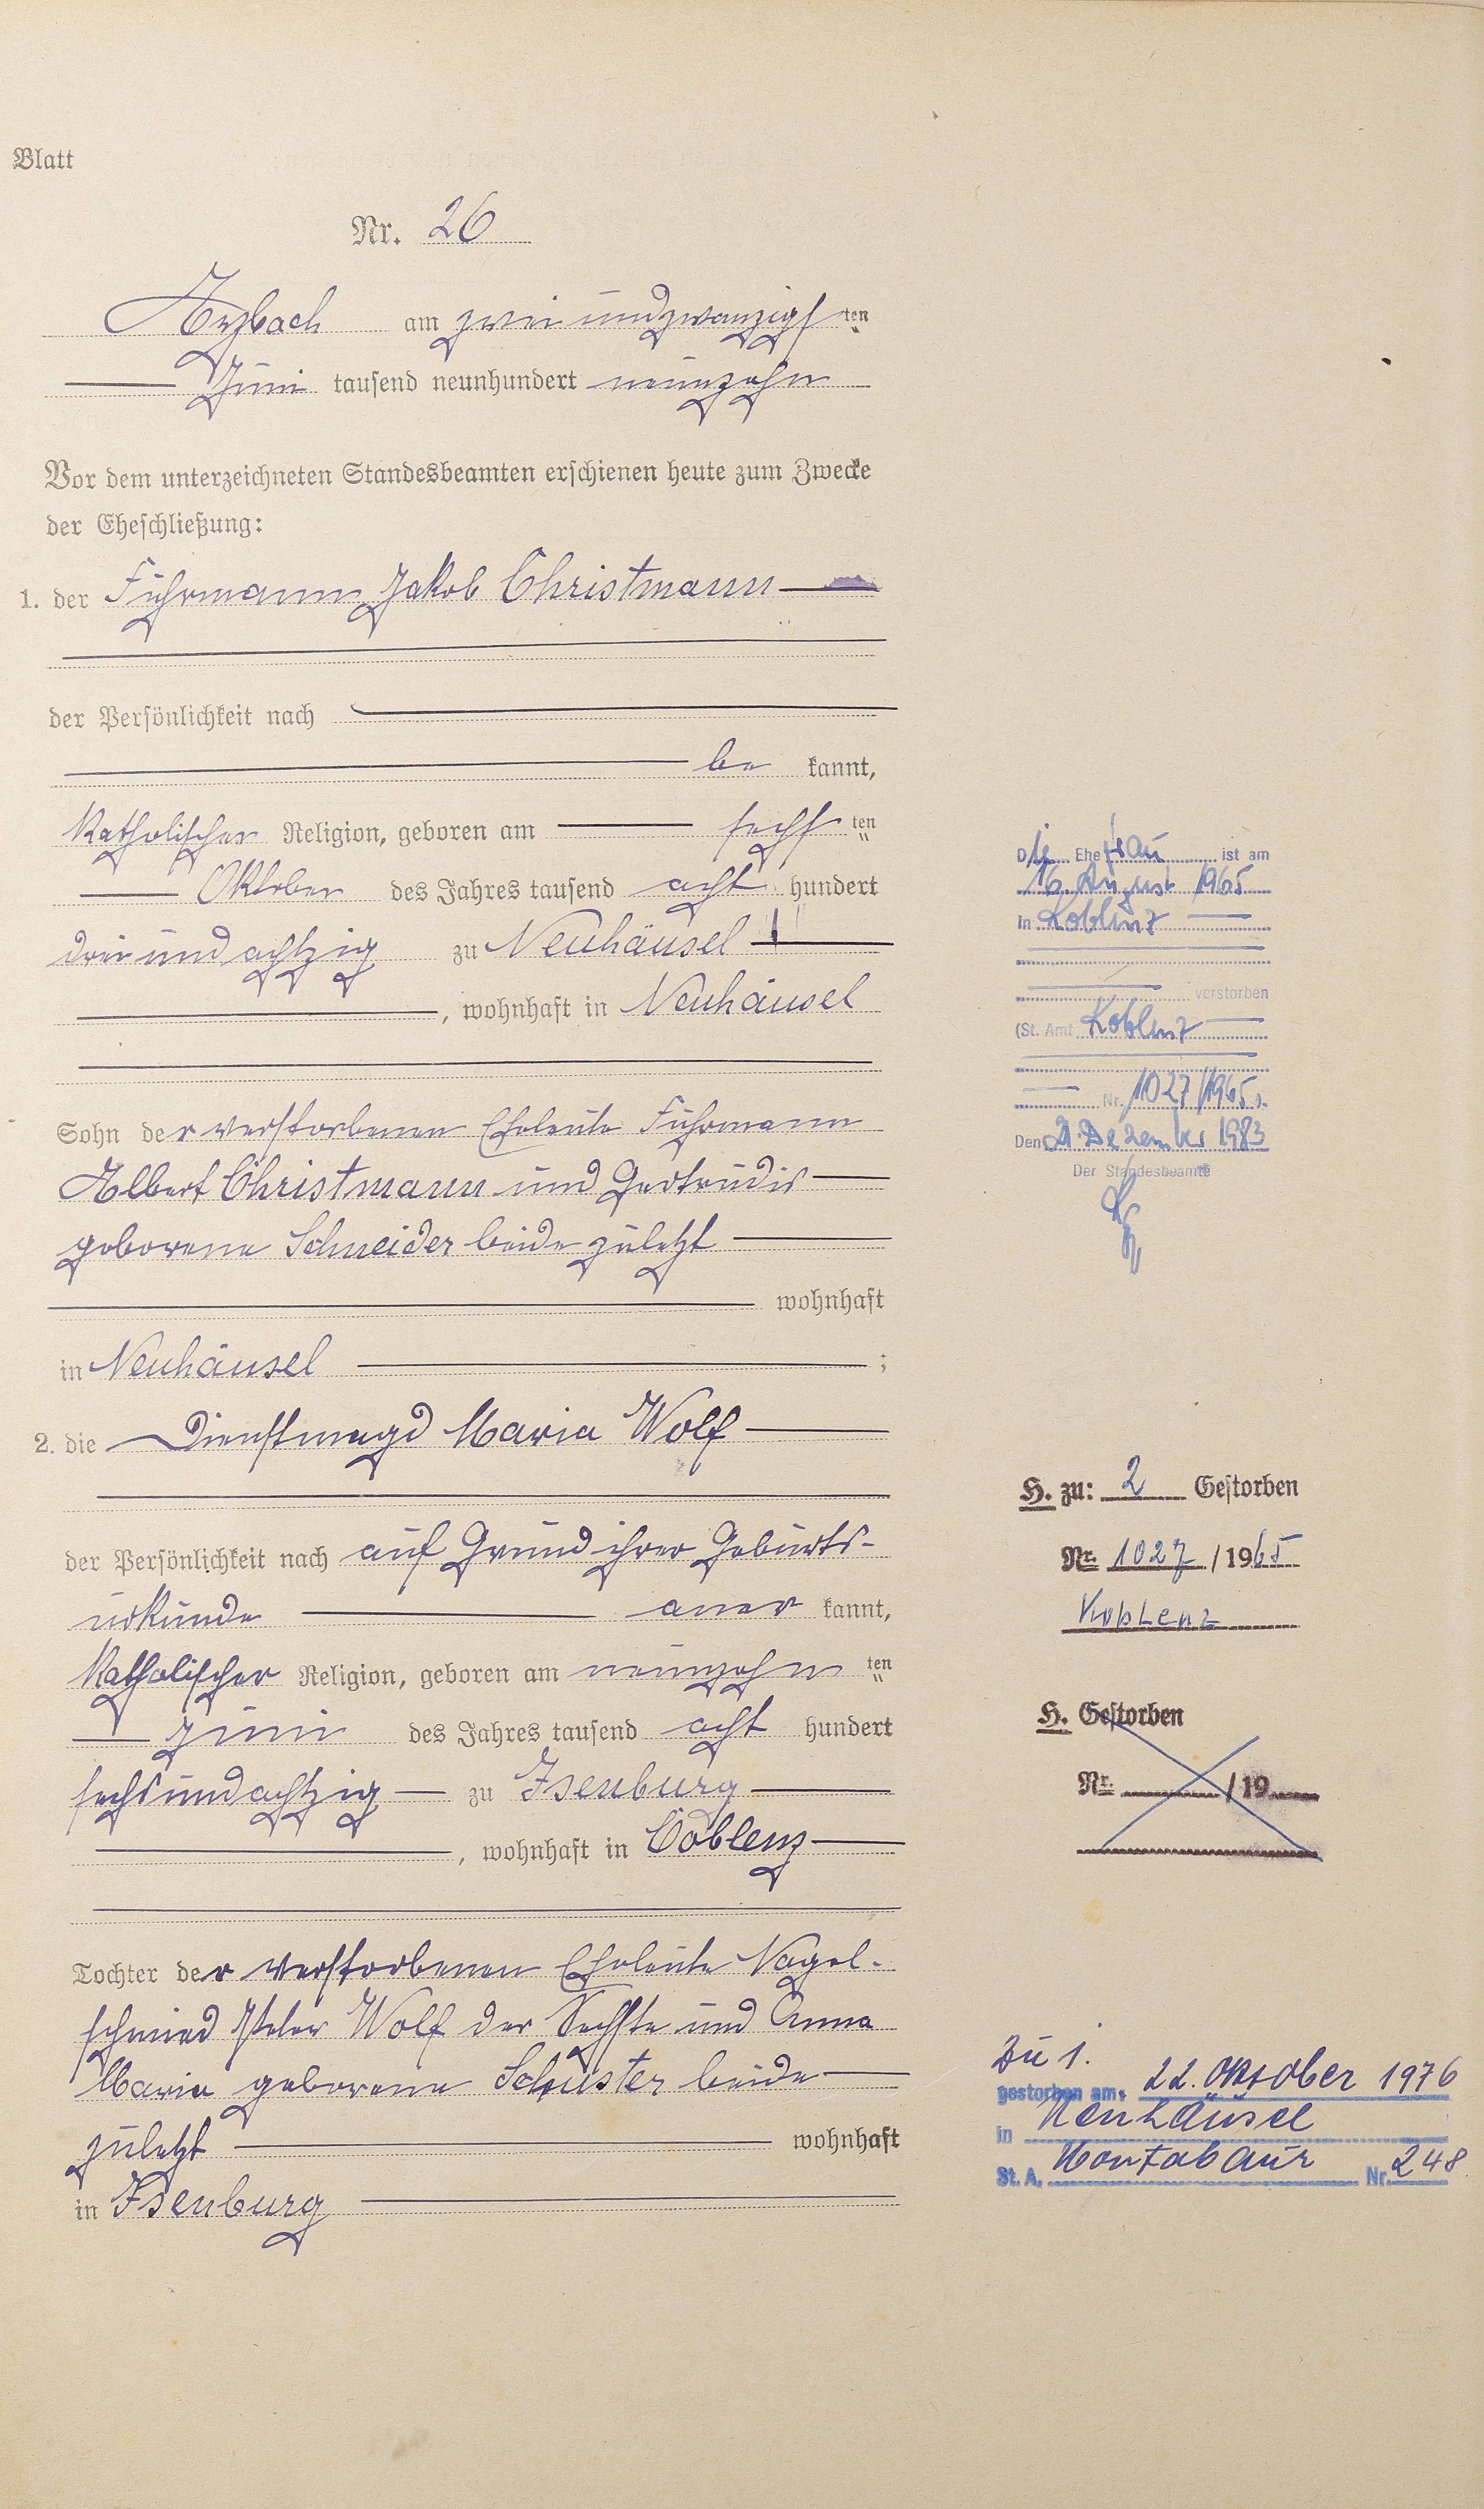 Blatt
Nr. 26
Arzbach am zwei und zwanzigsten
Juni tausend neunhundert neunzehn
Vor dem unterzeichneten Standesbeamten erschienen heute zum Zwecke
der Eheschließung:
1. der Fuhrmann Jakob Christmann
der Persönlichkeit nach
be kannt,
katholischer Religion, geboren am sechsten
Oktober des Jahres tausend acht hundert
drei und achtzig zu Neuhäusel
, wohnhaft in Neuhäusel
Sohn der verstorbenen Eheleute Fuhrmann
Albert Christmann und Gertrudis
geborene Schneider beide zuletzt
wohnhaft
in Neuhäusel ;
2. die Dienstmagd Maria Wolf
der Persönlichkeit nach auf Grund ihrer Geburts-
urkunde aner kannt,
katholischer Religion, geboren am neunzehnten
Juni des Jahres tausend acht hundert
sechsundachtzig zu Isenburg
, wohnhaft in Coblenz
Tochter der verstorbenen Eheleute Nagel-
schmied Peter Wolf der Sechste und Anna
Maria geborene Schuster beide
zuletzt wohnhaft
in Isenburg
Die Ehefrau ist am
16. August 1965
in Koblenz
verstorben
(St. Amt Koblenz
Nr. 1027/1965).
Den 21. Dezember 1983
Der Standesbeamte
H. zu: 2 Gestorben
Nr. 1027 / 1965
Koblenz
H. Gestorben
Nr. / 19
Zu 1.
gestorben am 22. Oktober 1976
in Neuhäusel
St. A. Montabaur Nr. 248